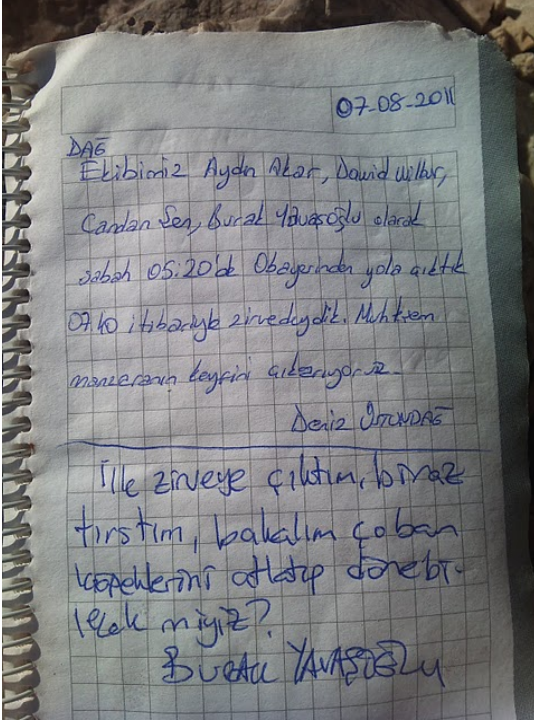 07-08-2011
DAĞ
Ekibimiz Aydın Akar, David Wilbur,
Candan Şen, Burak Yavaşoğlu olarak
sabah 05:20'de Obayerinden yola çıktık
07.40 itibariyle zirvedeydik. Muhteşem
manzaranın keyfini çıkarıyoruz.
Deniz
İlk zirveye çıktım, biraz
tırstım, bakalım çoban
köpeklerini atlatıp dönebi-
lecek miyiz?
Burak YAVAŞOĞLU